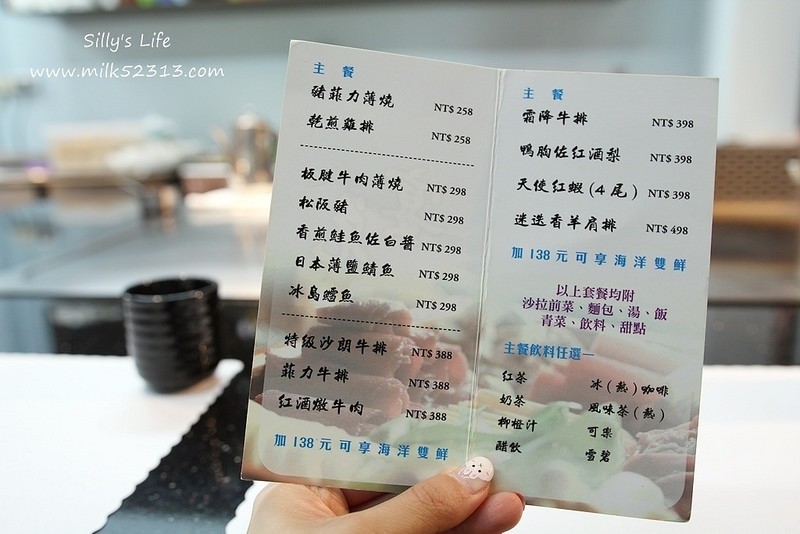 Silly's Life
www.milk52313.com
主餐
豬菲力薄燒 NT$ 258
乾煎雞排 NT$ 258
板腱牛肉薄燒 NT$ 298
松阪豬 NT$ 298
香煎鮭魚佐白醬 NT$ 298
日本薄鹽鯖魚 NT$ 298
冰島鱈魚 NT$ 298
特級沙朗牛排 NT$ 388
菲力牛排 NT$ 388
紅酒燉牛肉 NT$ 388
加 138 元可享海洋雙鮮
主餐
霜降牛排 NT$ 398
鴨胸佐紅酒梨 NT$ 398
天使紅蝦(4尾) NT$ 398
迷迭香羊肩排 NT$ 498
加 138 元可享海洋雙鮮
以上套餐均附
沙拉前菜、麵包、湯、飯
青菜、飲料、甜點
主餐飲料任選一
紅茶 冰(熱)咖啡
奶茶 風味茶(熱)
柳橙汁 可樂
醋飲 雪碧